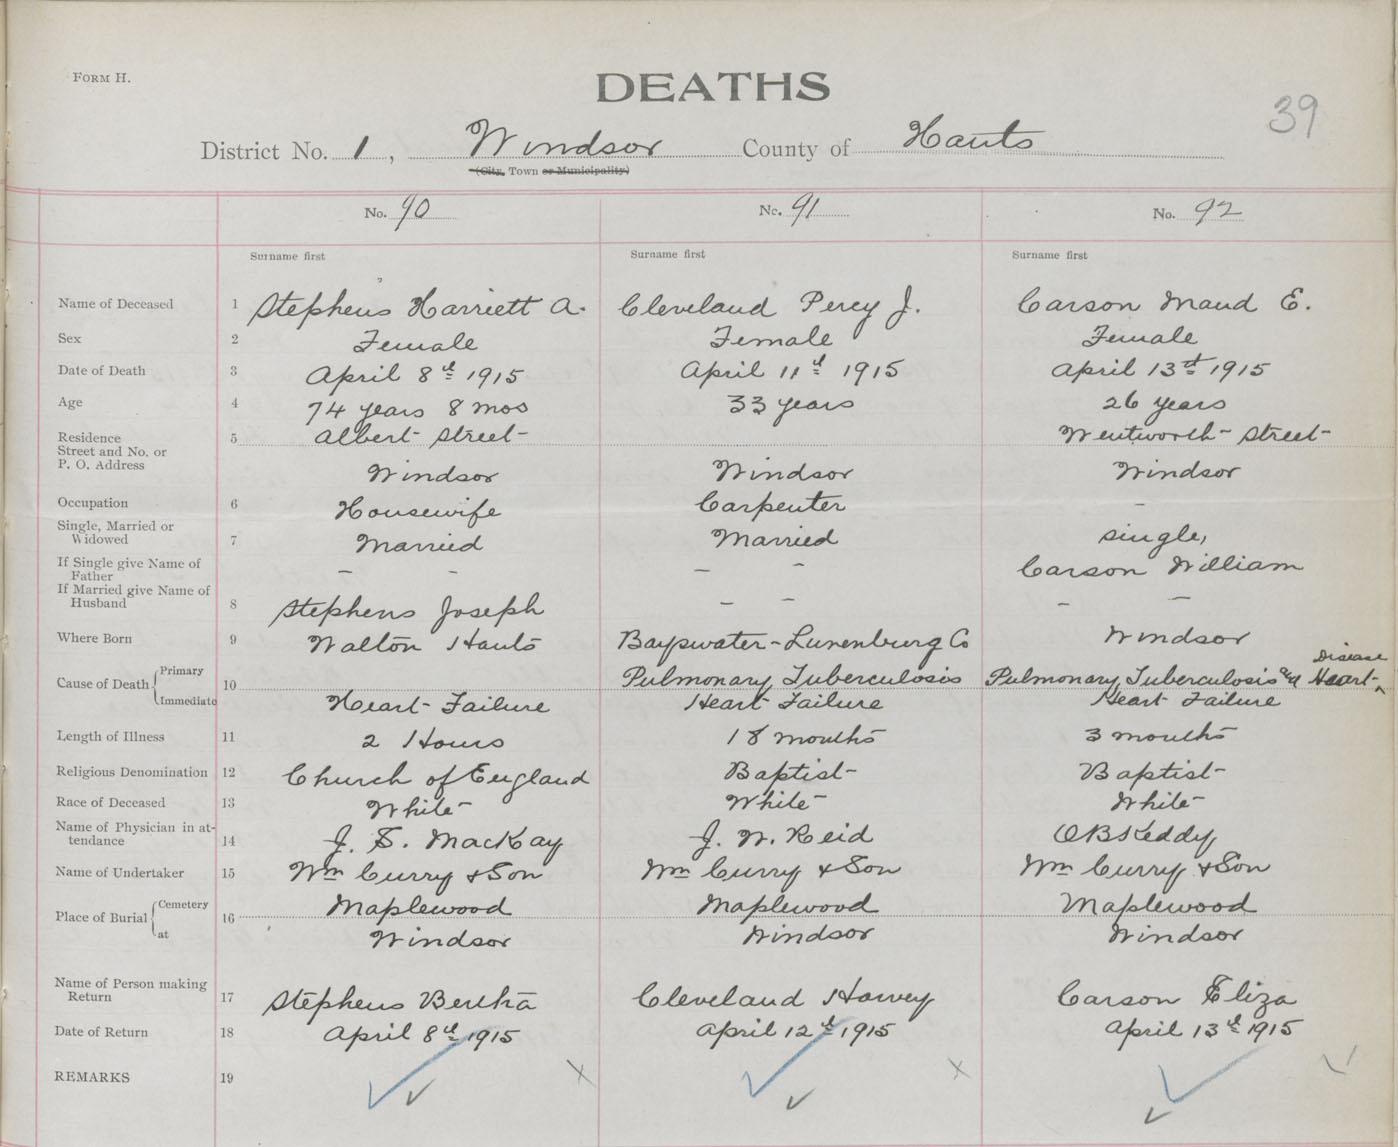 FORM H.
DEATHS
39
District No. 1, Windsor County of Hants
(City, Town or Municipality)
No. 90 No. 91 No. 92
Surname first Surname first Surname first
Name of Deceased 1 Stephens Harriett A. Cleveland Percy J. Carson Maud E.
Sex 2 Female Female Female
Date of Death 3 April 8th 1915 April 11th 1915 April 13th 1915
Age 4 74 years 8 mos 33 years 26 years
Residence 5 Albert Street Wentworth Street
Street and No. or
P. O. Address Windsor Windsor Windsor
Occupation 6 Housewife Carpenter -
Single, Married or
Widowed 7 Married Married single,
If Single give Name of
Father - - - - Carson William
If Married give Name of
Husband 8 Stephens Joseph - - - -
Where Born 9 Walton Hants Baypwater-Lunenburg Co Windsor
Cause of Death Primary 10 Pulmonary Tuberculosis Pulmonary Tuberculosis and Heart Disease
Immediate Heart Failure Heart Failure Heart Failure
Length of Illness 11 2 Hours 18 months 3 months
Religious Denomination 12 Church of England Baptist Baptist
Race of Deceased 13 White White White
Name of Physician in at-
tendance 14 J. S. MacKay J. W. Reid O B Keddy
Name of Undertaker 15 Wm Curry & Son Wm Curry & Son Wm Curry & Son
Place of Burial Cemetery 16 Maplewood Maplewood Maplewood
at Windsor Windsor Windsor
Name of Person making
Return 17 Stephens Bertha Cleveland Harvey Carson Eliza
Date of Return 18 April 8th 1915 April 12th 1915 April 13th 1915
REMARKS 19